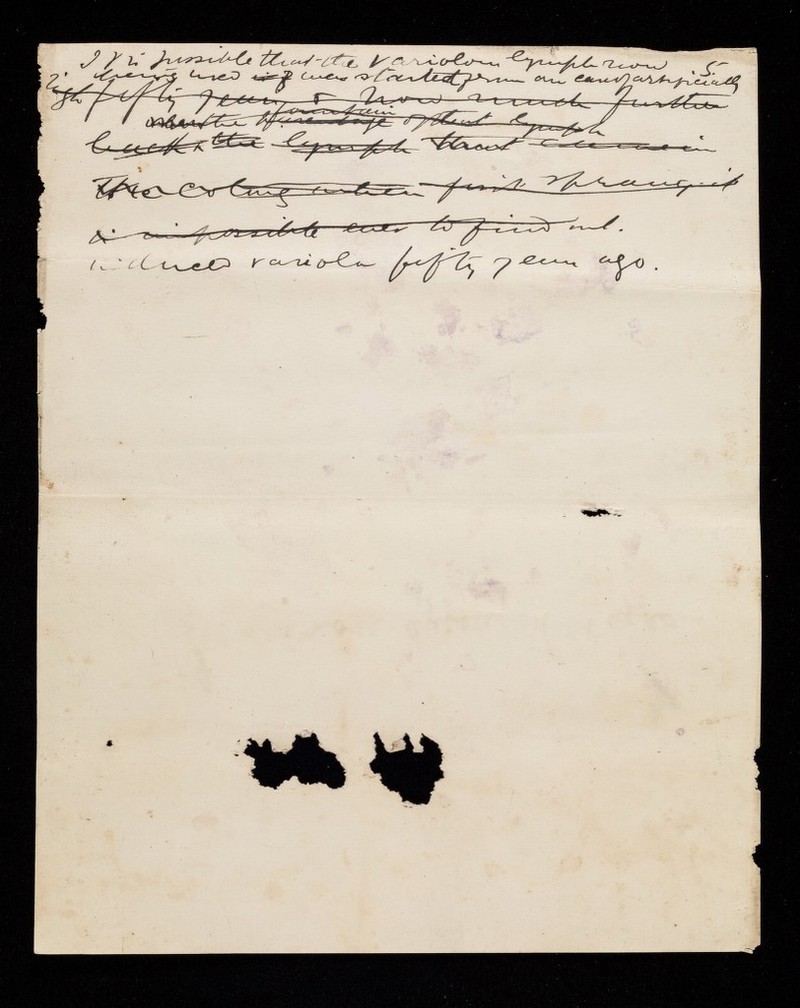 It is possible that the variolous lymph now 5
being used was started from an artificially
fifty years & how much further
fountain
whether the of that lymph
back the lymph that came in
the when first sprang it
is impossible ever to find out.
induced variola fifty years ago.